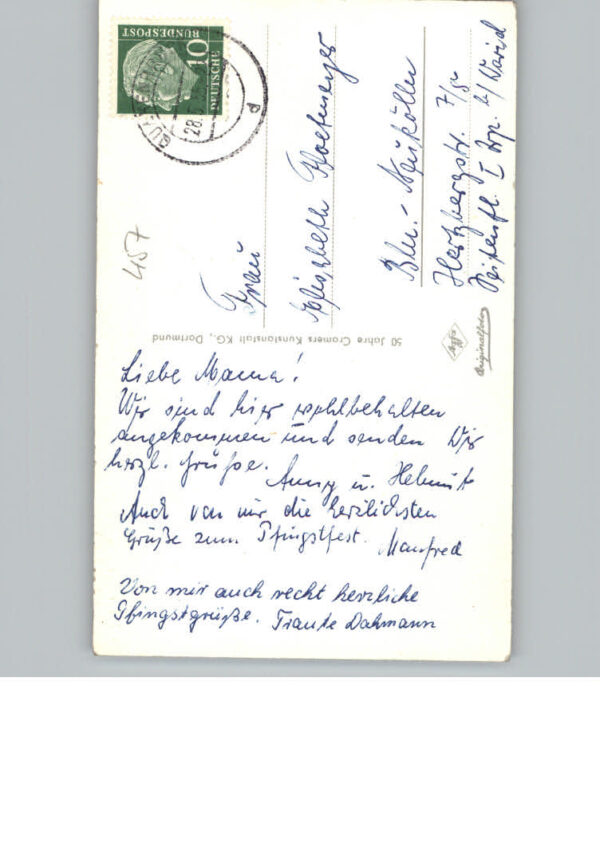 DEUTSCHE
BUNDESPOST
10
28.5
d
457
Frau
Elisabeth
Bln.-Neukölln
Hertzbergstr. 7/
Seitenfl. I Trp.
50 Jahre Cramers Kunstanstalt KG., Dortmund
Agfa
Originalfoto
Liebe Mama!
Wir sind hier wohlbehalten
angekommen und senden Dir
herzl. Grüße.
Anny u. Helmut
Auch von mir die herzlichsten
Grüße zum Pfingstfest. Manfred
Von mir auch recht herzliche
Pfingstgrüße. Traute Dahmann